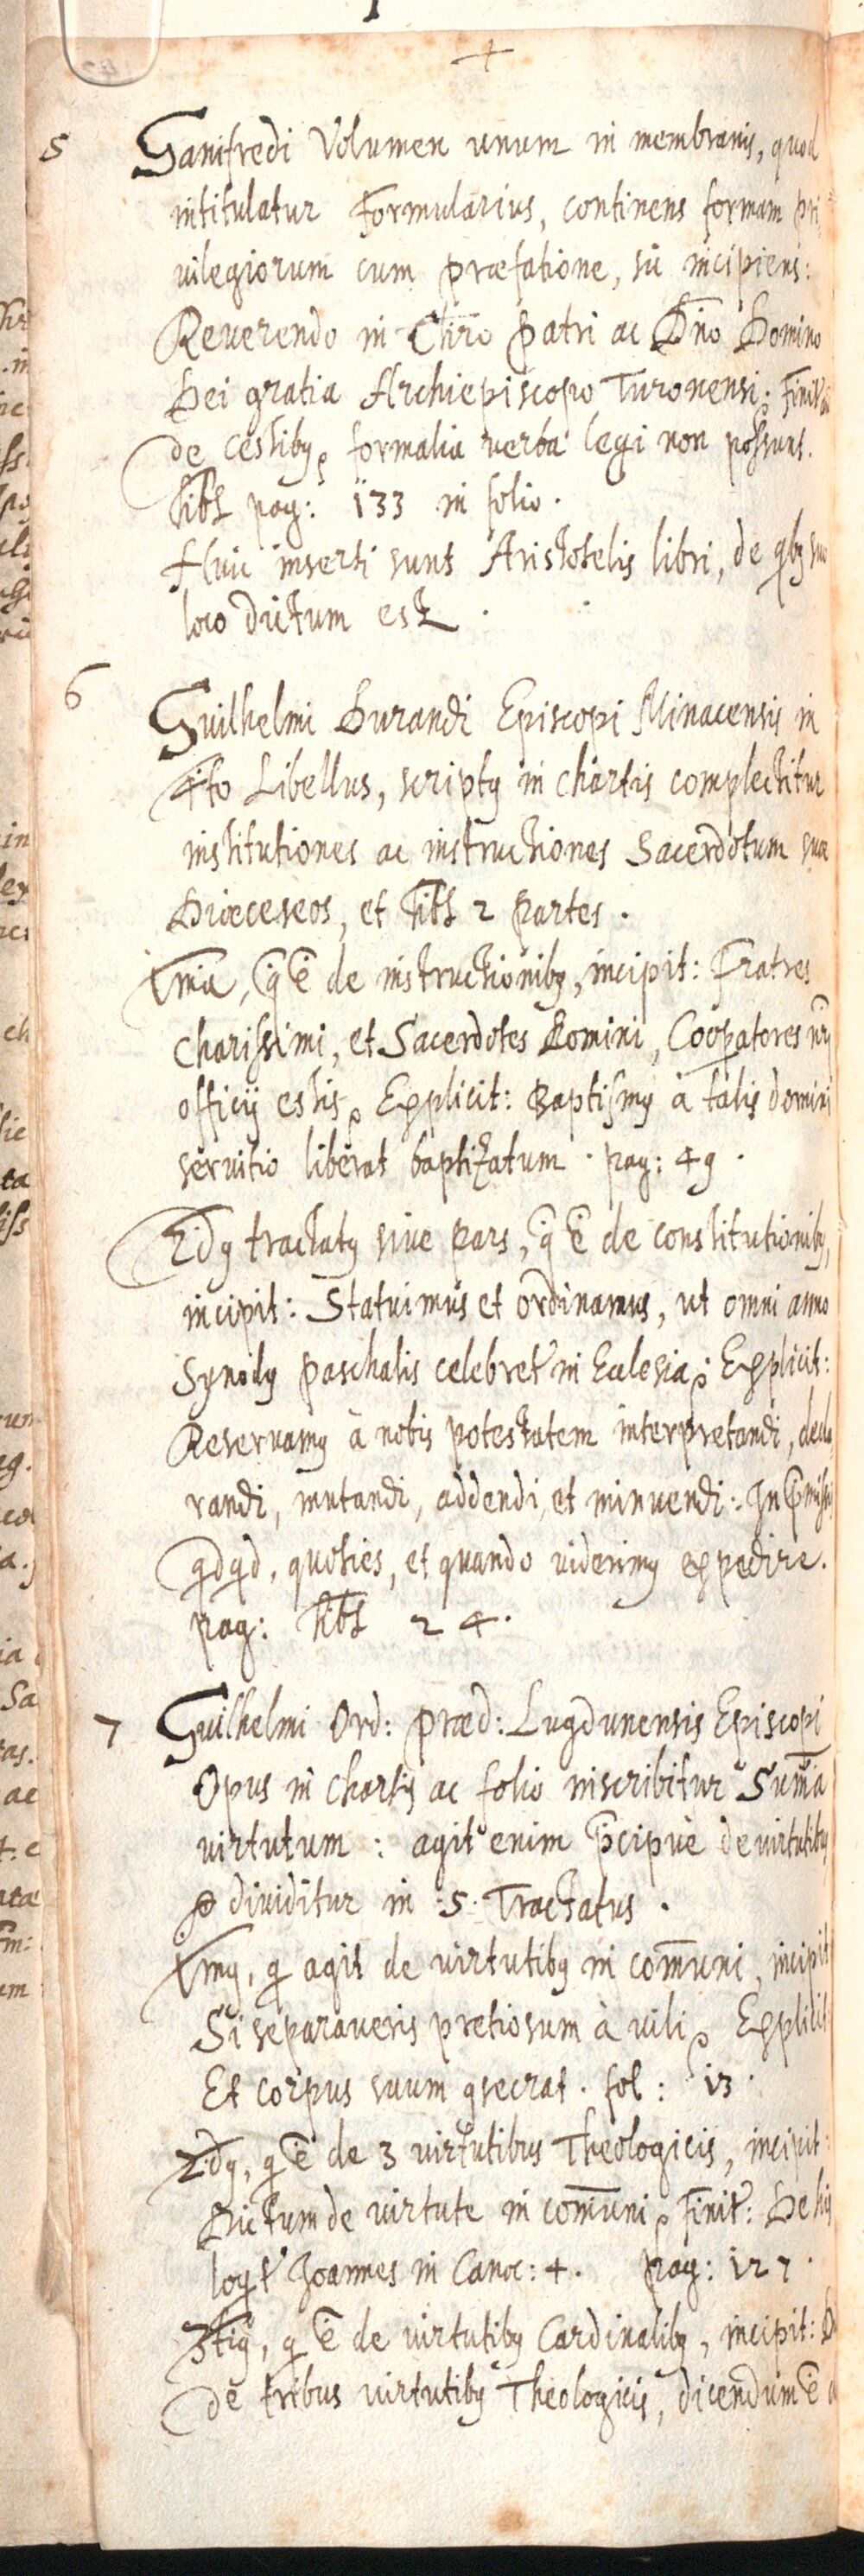 +
5 Ganifredi Volumen unum in membranis, quod
intitulatur Formularius, continens formam pri,
uilegiorum cum præfatione, sũ incipiens:
Reuerendo in Chr̃o Patri ac Dño Domino
Dei gratia Archiepiscopo Turonensi: Finit
de cestibꝰ formalia uerba legi non possunt.
hꝫ pag: 133 in folio.
Huic inserti sunt Aristotelis libri, de qbꝰ suo
loco dictum est.
6 Guilhelmi Durandi Episcopi Minacensis in
4to Libellus, scriptꝰ in chartis complectitur
institutiones ac instructiones Sacerdotum suæ
Diœceseos, et 2 partes.
1ma, q̃ ẽ de instructionibꝰ, incipit: Fratres
charissimi, et Sacerdotes Domini, Cooꝑatores nr̃i
officij estis. Explicit: Baptismꝰ à talis domini
seruitio liberat baptizatum. pag: 49.
2dꝰ tractatꝰ siue pars, q̃ ẽ de constitutionibꝰ,
incipit: Statuimus et ordinamus, ut omni anno
Synodꝰ paschalis celebret' in Ecclesia: Explicit:
Reseruamꝰ à nobis potestatem interpretandi, decla
randi, mutandi, addendi, et minuendi: In p̃missis
qdqd, quoties, et quando uiderimꝰ expedire.
pag: 24.
7 Guilhelmi Ord: præd: Lugdunensis Episcopi
Opus in chartis ac folio inscribitur Sum̃a
uirtutum: agit enim p̃cipuè de uirtutibꝰ
diuiditur in 5. Tractatus.
1mꝰ, q agit de uirtutibꝰ in com̃uni, incipit
Si separaueris pretiosum à uili. Explicit
Et corpus suum ꝯsecrat. fol: 13.
2dꝰ, q ẽ de 3 uirtutibus Theologicis, incipit:
Dictum de uirtute in com̃uni. Finit': De his
loqt' Joannes in Canoc: 4. Pag: 127.
3tiꝰ, q ẽ de uirtutibꝰ Cardinalibꝰ, incipit:
de tribus uirtutibꝰ Theologicis, dicendum ẽ